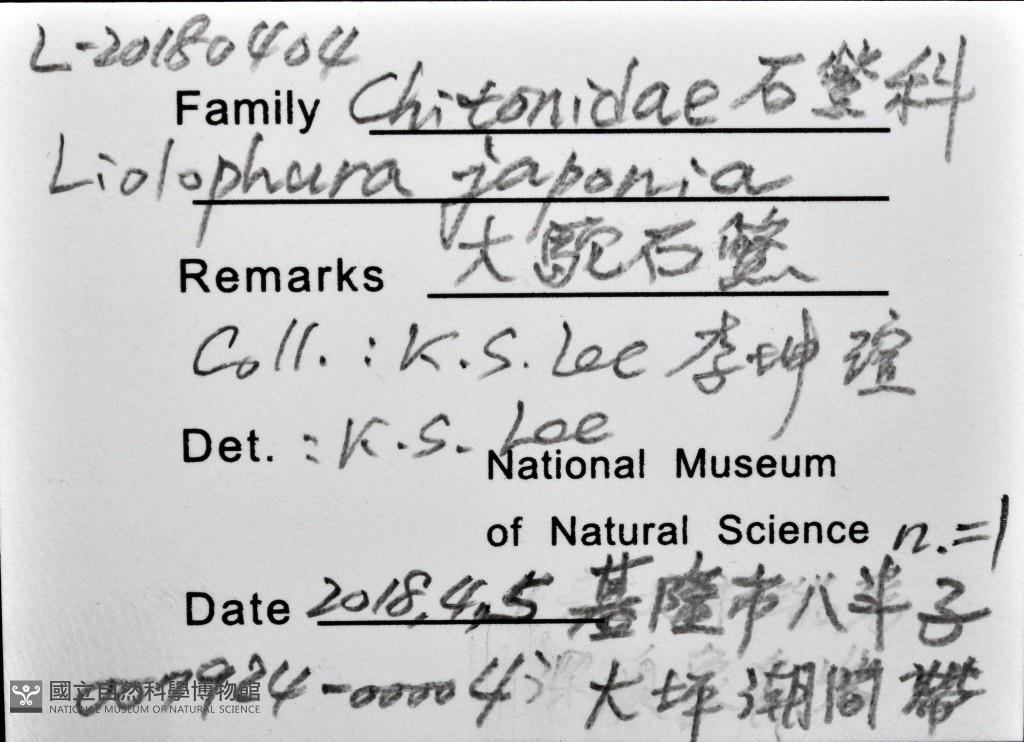 L-20180404
Family Chitonidae 石鱉科
Liolophura japonia
大駝石鱉
Remarks
Coll. : K.S. Lee 李坤瑄
Det. : K.S. Lee
National Museum
of Natural Science n.=1
Date 2018.4.5 基隆市八斗子
-00004 大坪潮間帶
國立自然科學博物館
NATIONAL MUSEUM OF NATURAL SCIENCE